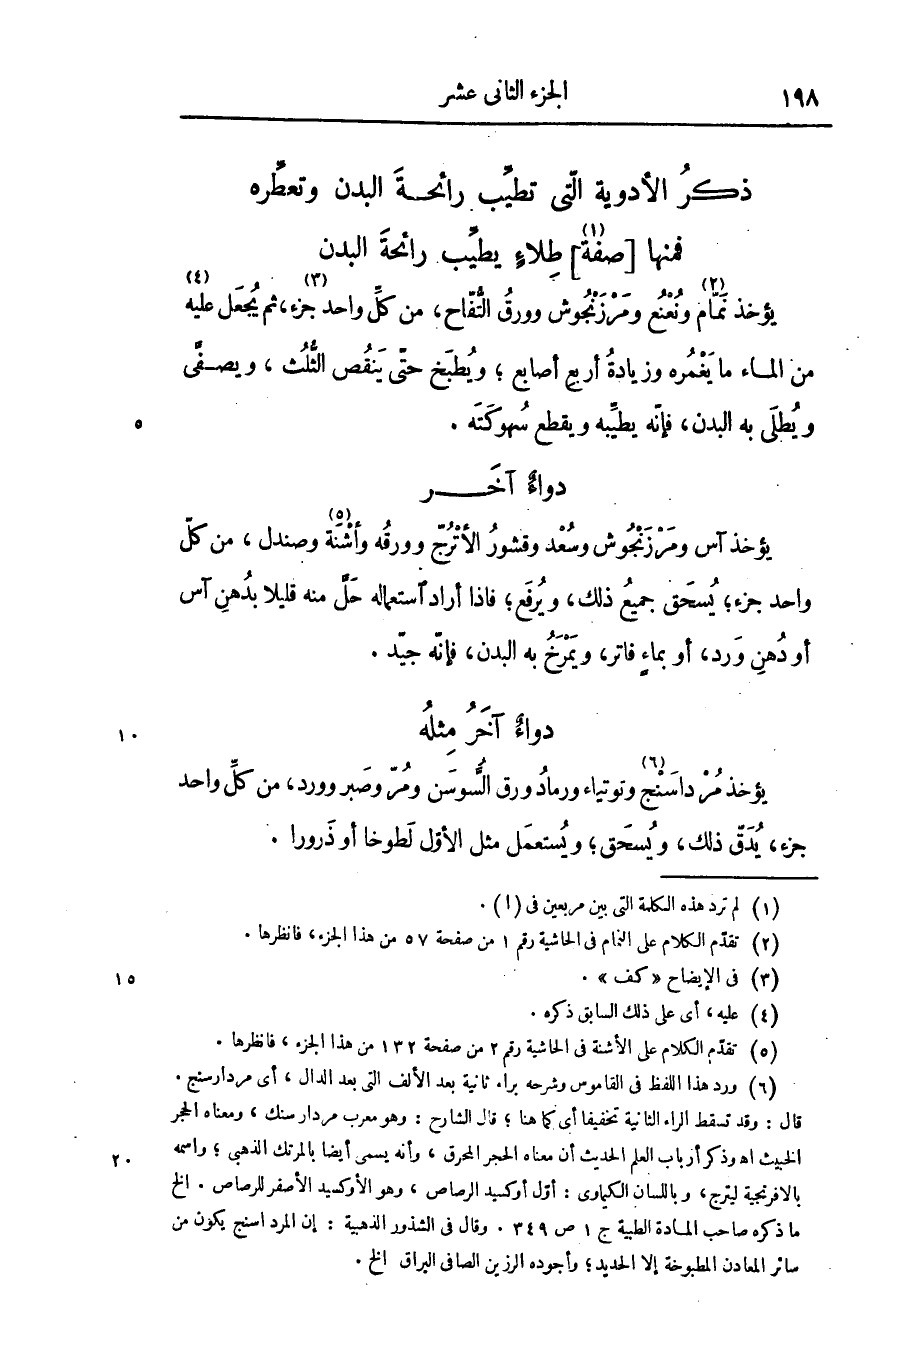 ١٩٨ الجزء الثانى عشر
ذكرُ الأدوية الّتى تطيِّب رائحـة البدن وتعطِّره
فمنها [صفة](١) طِلاءٍ يطيِّب رائحةَ البدن
يؤخذ نَمّام(٢) ونُعْنُع ومَرْزَنْجُوش وورقُ التُّفّاح(٣)، من كلِّ واحد جزء، ثم يُجعَل عليه(٤)
من المـاء ما يَغْمُره وزيادةُ أربعِ أصابع؛ ويُطبَخ حتّى يَنقُص الثُّلُث، ويصفَّى
ويُطلَى به البدن، فإنّه يطيِّبه ويقطع سُهوكَتَه. ٥
دواءٌ آخَـــر
يؤخذ آس ومَرْزَنْجُوش وسُعْد وقشورُ الأُتْرُجّ وورقُه وأُشْنَة(٥) وصندل، من كلّ
واحد جزء؛ يُسحَق جميعُ ذلك، ويُرفَع؛ فاذا أراد آستعماله حَلَّ منه قليلا بدُهنِ آس
أو دُهنِ وَرد، أو بماءٍ فاتر، ويَمْرَخُ به البدن، فإنّه جيّد.
دواءٌ آخَرُ مِثلُه ١٠
يؤخذ مُرْداسَنْج(٦) وتوتياء ورمادُ ورق السُّوسَن ومُرّ وصَبِر وورد، من كلِّ واحد
جزء، يُدَقّ ذلك، ويُسحَق؛ ويُستعمَل مثل الأوّل لَطوخا أو ذَرورا.
(١) لم ترد هذه الكلمة التى بين مربعين فى (ا).
(٢) تقدّم الكلام على النمام فى الحاشية رقم ١ من صفحة ٥٧ من هذا الجزء، فانظرها.
(٣) فى الإيضاح «كف». ١٥
(٤) عليه، أى على ذلك السابق ذكره.
(٥) تقدّم الكلام على الأشنة فى الحاشية رقم ٢ من صفحة ١٣٢ من هذا الجزء، فانظرها.
(٦) ورد هذا اللفظ فى القاموس وشرحه براء ثانية بعد الألف التى بعد الدال، أى مردارسنج.
قال: وقد تسقط الراء الثانية تخفيفا أى كما هنا؛ قال الشارح: وهو معرب مردارسنك، ومعناه الحجر
الخبيث اه وذكر أرباب العلم الحديث أن معناه الحجر المحرق، وأنه يسمى أيضا بالمرتك الذهبي؛ واسمه ٢٠
بالافرنجية ليترج، وباللسان الكيماوى: أوّل أوكسيد الرصاص، وهو الأوكسيد الأصفر للرصاص. الخ
ما ذكره صاحب المـادة الطبية ج ١ ص ٣٤٩. وقال فى الشذور الذهبية: إن المرداسنج يكون من
سائر المعادن المطبوخة إلا الحديد؛ وأجوده الرزين الصافى البراق الخ.